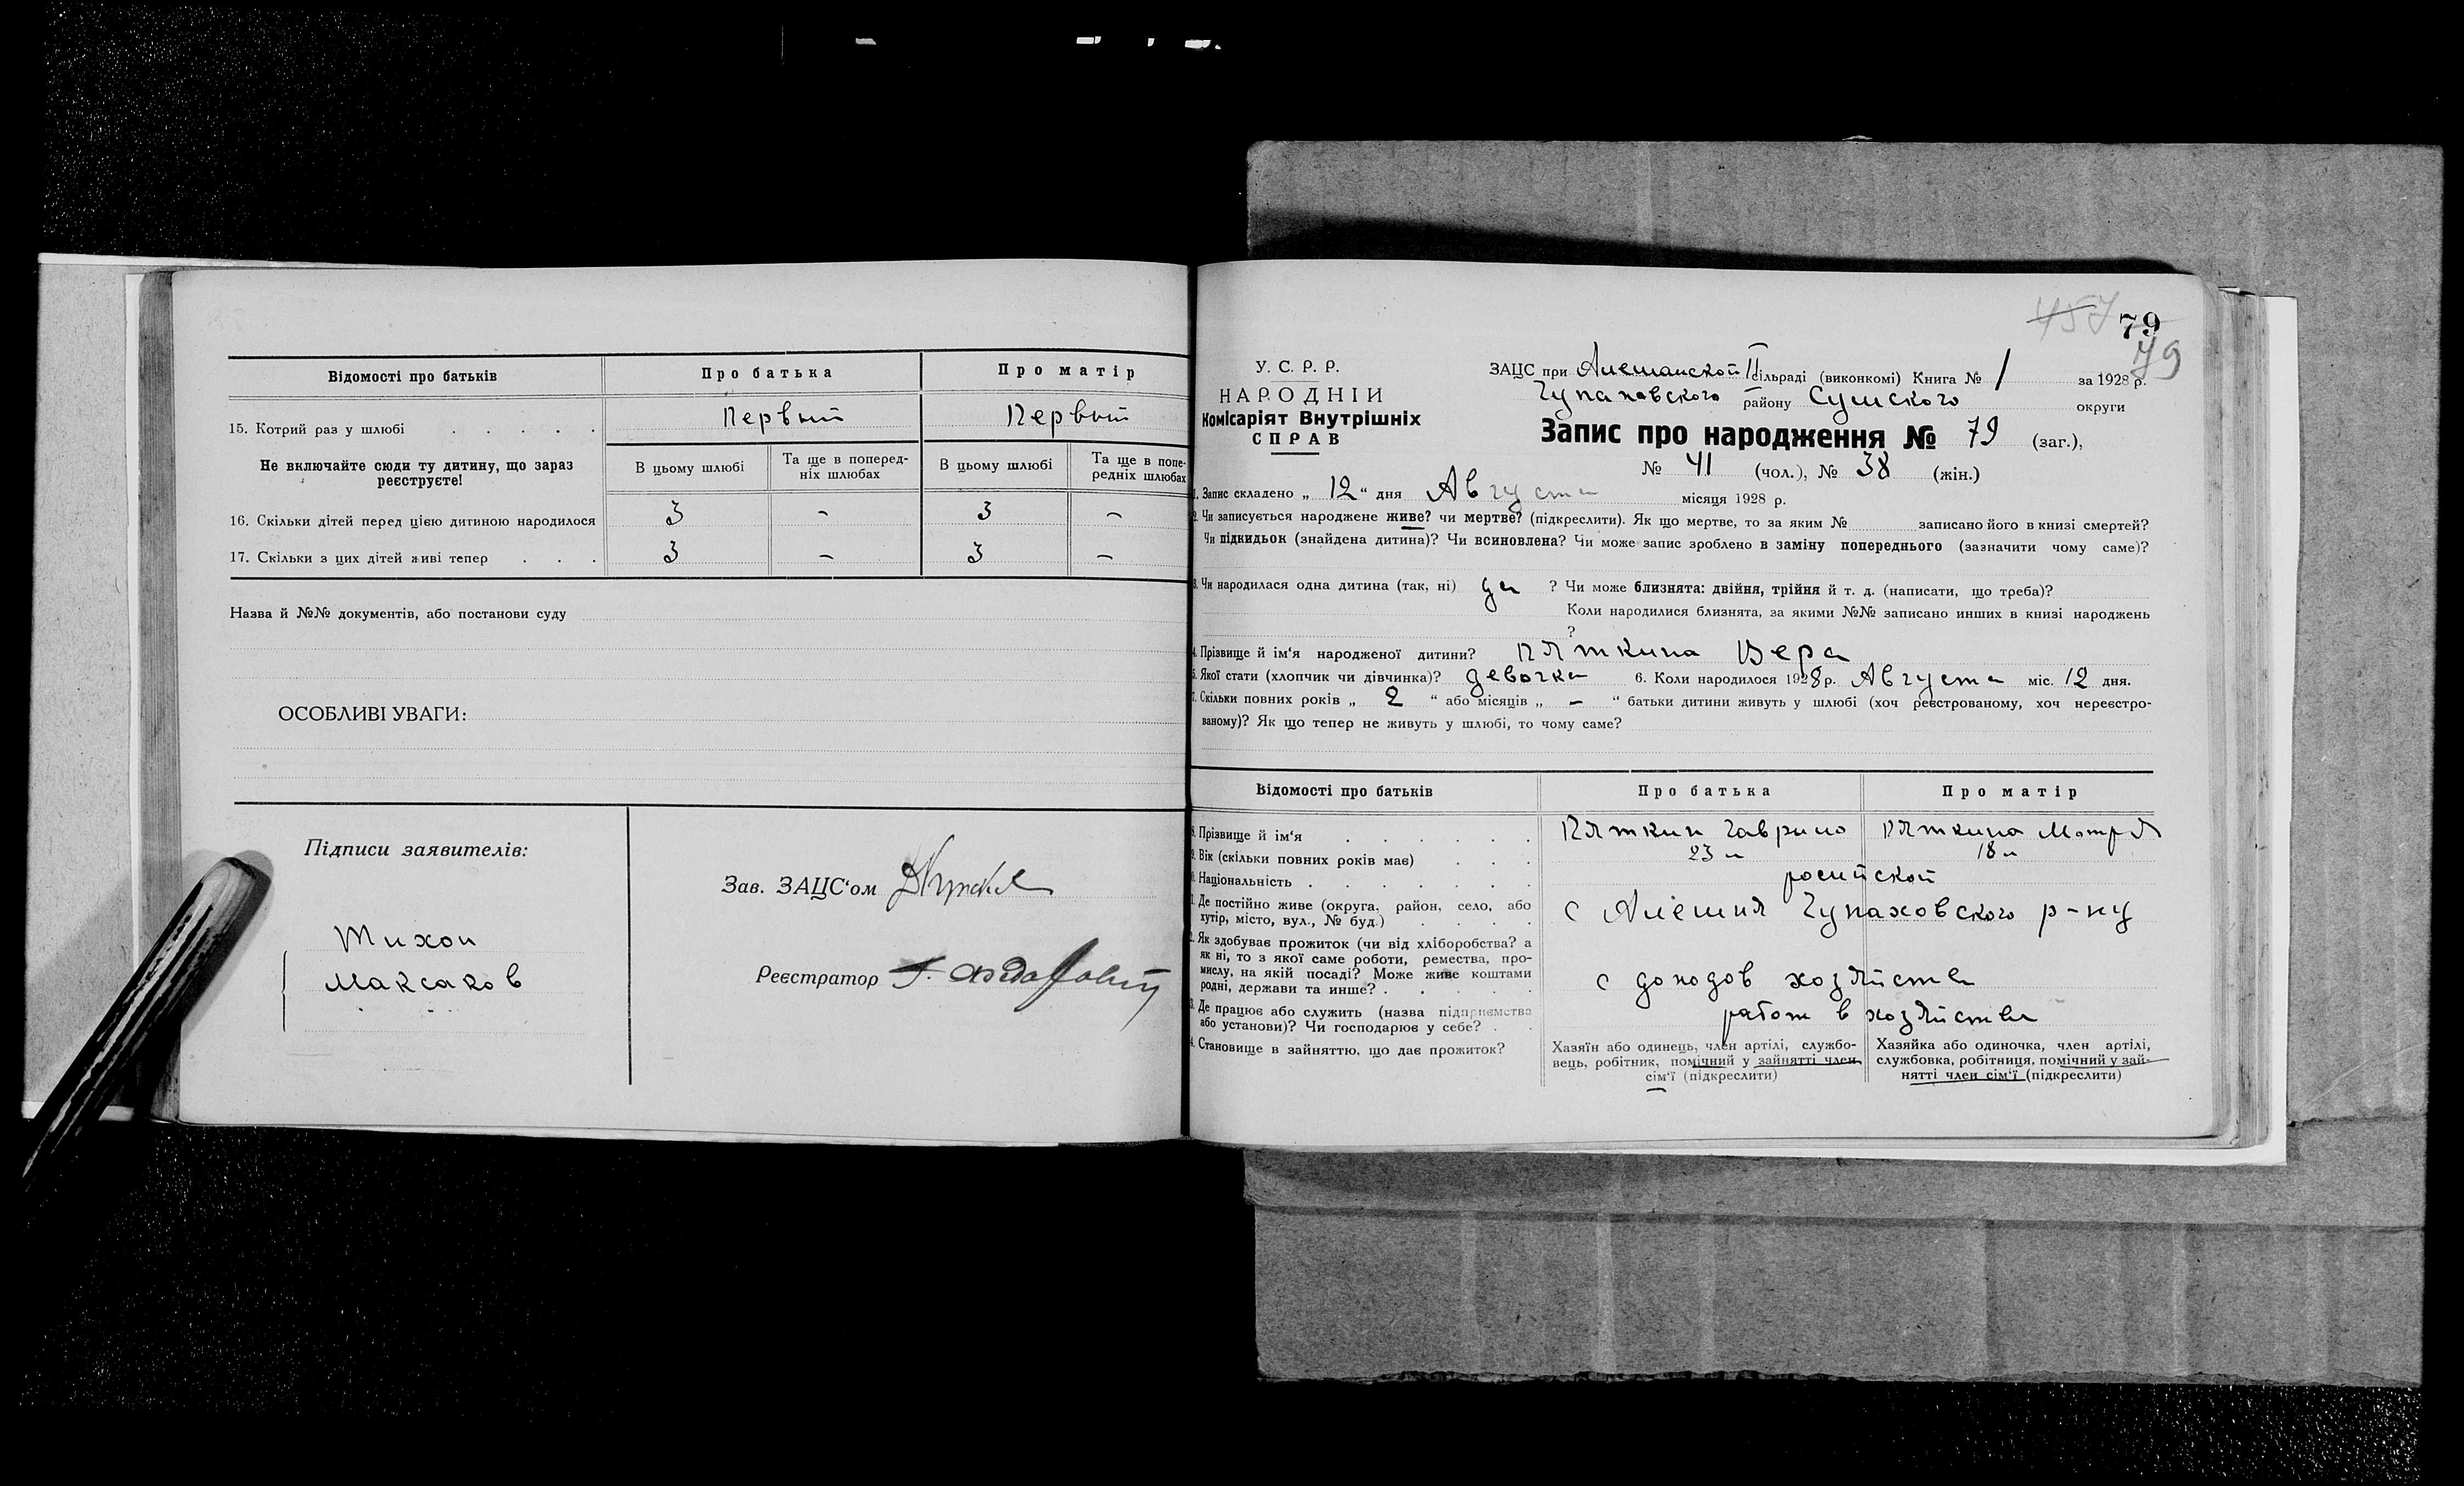 Відомості про батьків Про батька Про матір
15. Котрий раз у шлюбі . . . . . Первый Первый
Не включайте сюди ту дитину, що зараз реєструєте!
В цьому шлюбі Та ще в поперед-ніх шлюбах В цьому шлюбі Та ще в попе-редніх шлюбах
16. Скільки дітей перед цією дитиною народилося 3 - 3 -
17. Скільки з цих дітей живі тепер . . . 3 - 3 -
Назва й №№ документів, або постанови суду
ОСОБЛИВІ УВАГИ:
Підписи заявителів:
Тихон
Максаков
Зав. ЗАЦС'ом
Реєстратор
457 79
79
У. С. Р. Р.
НАРОДНІЙ
Комісаріят Внутрішніх
СПРАВ
ЗАЦС при Алешанской II сільраді (виконкомі) Книга № 1 за 1928 р.
Чупаховского району Сумского округи
Запис про народження № 79 (заг.),
№ 41 (чол.), № 38 (жін.)
1. Запис складено „ 12 “ дня Августа місяця 1928 р.
2. Чи записується народжене живе? чи мертве? (підкреслити). Як що мертве, то за яким № записано його в книзі смертей?
Чи підкидьок (знайдена дитина)? Чи всиновлена? Чи може запис зроблено в заміну попереднього (зазначити чому саме)?
3. Чи народилася одна дитина (так, ні) да ? Чи може близнята: двійня, трійня й т. д. (написати, що треба)?
Коли народилися близнята, за якими №№ записано инших в книзі народжень
?
4. Прізвище й ім'я народженої дитини? Пяткина Вера
5. Якої стати (хлопчик чи дівчинка)? девочка 6. Коли народилося 1928 р. Августа міс. 12 дня.
7. Скільки повних років „ 2 “ або місяців „ - “ батьки дитини живуть у шлюбі (хоч реєстрованому, хоч нереєстро-
ваному)? Як що тепер не живуть у шлюбі, то чому саме?
Відомості про батьків Про батька Про матір
8. Прізвище й ім'я . . . . . . Пяткин Гаврило Пяткина Мотря
9. Вік (скільки повних років має) . . . 23 л 18 л
10. Національність . . . . . . . росийской
11. Де постійно живе (округа, район, село, або
хутір, місто, вул., № буд.) . . . . с Алешня Чупаховского р-ну
12. Як здобуває прожиток (чи від хліборобства? а
як ні, то з якої саме роботи, ремества, про-
мислу, на якій посаді? Може живе коштами
родні, держави та инше? . . . . . с доходов хозяйства
13. Де працює або служить (назва підприємства
або установи)? Чи господарює у себе? . . работ в хозяйстве
14. Становище в зайняттю, що дає прожиток?
Хазяїн або одинець, член артілі, службо-
вець, робітник, помічний у зайнятті член
сім'ї (підкреслити)
Хазяйка або одиночка, член артілі,
службовка, робітниця, помічний у зай-
нятті член сім'ї (підкреслити)